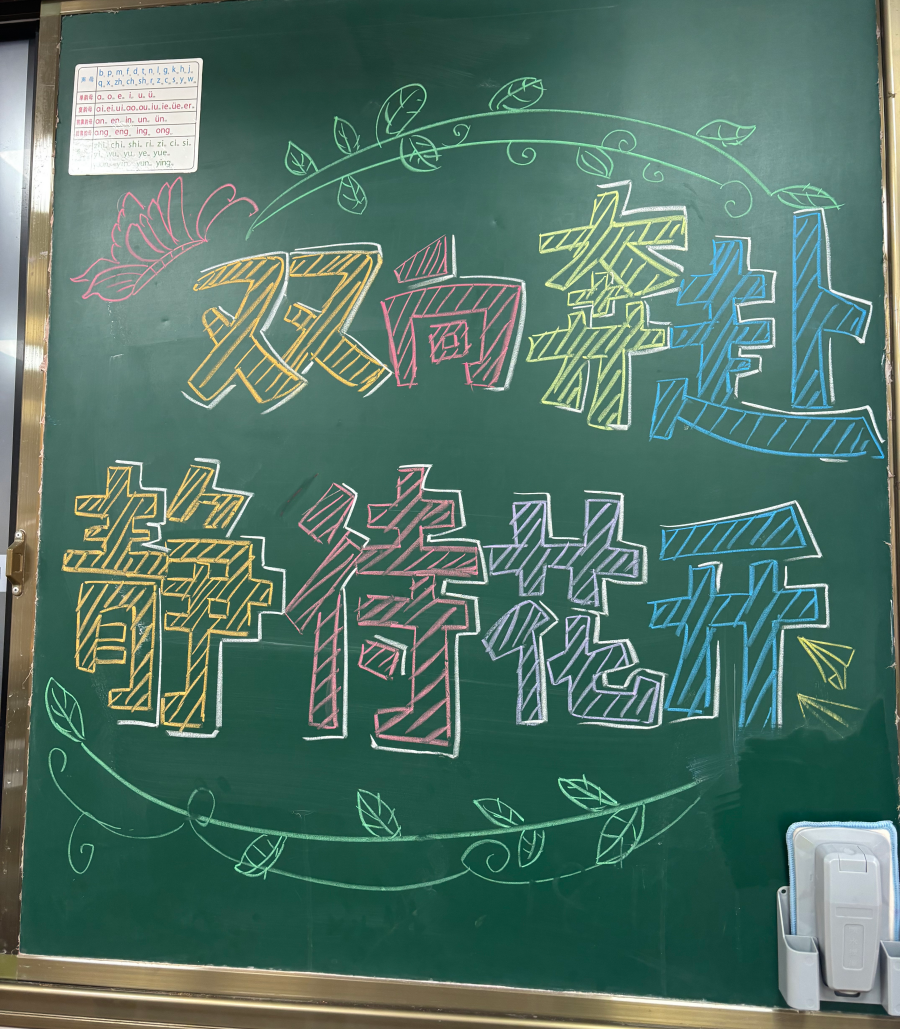 声母 b、p、m、f、d、t、n、l、g、k、h、j、
q、x、zh、ch、sh、r、z、c、s、y、w、
a、o、e、i、u、ü、
ai、ei、ui、ao、ou、iu、ie、üe、er、
an、en、in、un、ün、
ang、eng、ing、ong、
chi、shi、ri、zi、ci、si、
wu、yu、ye、yue、
yun、ying、
双向奔赴
静待花开